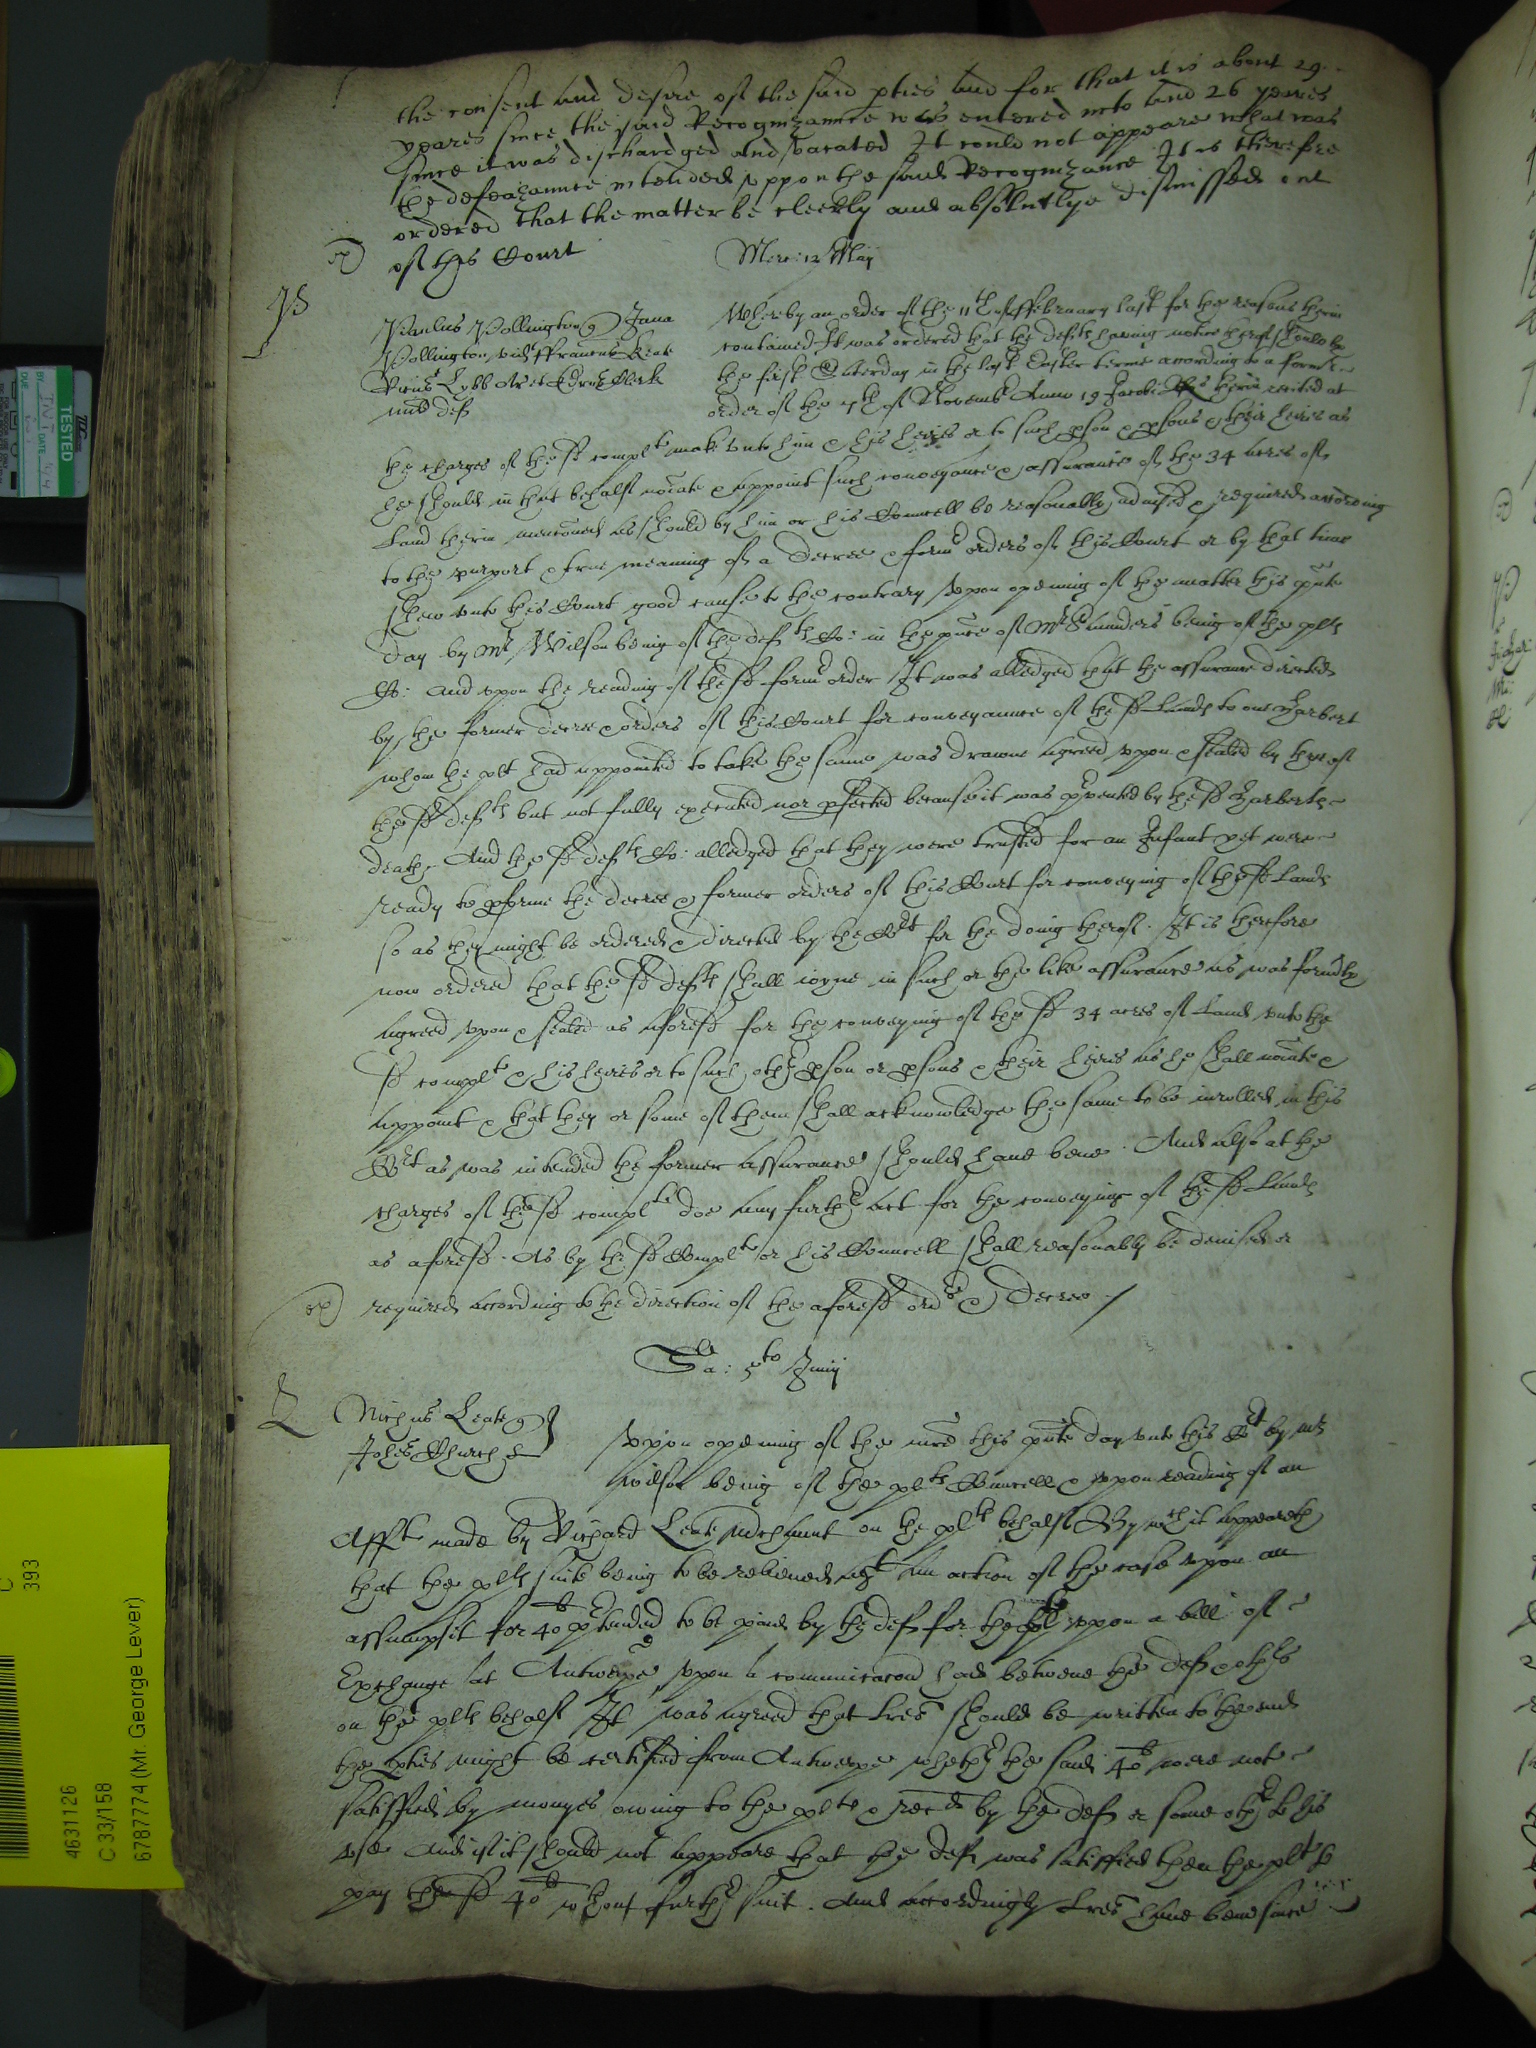 the consent and desire of the said pties And for that it is about 29
yeares since the said Recognizaunce was entered into and 26 yeares
since it was dischardged and vacated It could not appeare what was
the defeazaunce intended vppon the said Recognizance It is therefore
ordered that the matter be cleerly and absolutlye dismissed out
of this Court
Merc: 12 Maij
Pollington Jana
Pollington vid ffrancus Keate
Lybb Ar et Clerk
def
Whereby an order of the 11th of ffebruary last for the reasons therin
contained It was ordered that the defts having notice therof should by
the first Saterday in the last Easter terme according to a former
order of the 7th of Novemb Anno 19 Jacobi Rs therin recited at
the charges of the sd complt make vnto him & his heires or to such pson & psons & their heires as
he should in that behalf noiate & appoint such conveyance & assurance of the 34 acres of
Land therin menconed as should by him or his Councell be reasonably advised & required according
to the purport & true meaning of a decree & form orders of this Court or by that time
shew vnto this Court good cause to the contrary Vpon opening of the matter this pnte
day by Mr Wilson being of the defts Co: in the pnce of Mr Saunders being of the plts
Co: And vpon the reading of the sd form order It was alledged that the assurance directed
by the former decree & orders of this Court for conveyaunce of the sd Lands to one Harbert
whom the plt had appointed to take the same was drawne agreed vpon & sealed by three of
the sd defts but not fully executed nor pfected because it was pvented by the sd Harberts
death And the sd defts Co: alledged that they were trusted for an Infant yet were
ready to pforme the decree & former orders of this Court for conveying of the sd Lands
so as they might be ordered & directed by the Crt for the doing therof. It is therefore
now ordered that the sd defts shall ioyne in such or the like assurance as was formly
agreed vpon & sealed as aforesd for the conveying of the sd 34 acres of Land vnto the
sd complt & his heires or to such other pson or psons & their heires as he shall noiate &
appoint & that they or some of them shall acknowledge the same to be inrolled in this
Crt as was intended the former assurance should have bene. And also at the
charges of the sd complt doe any further act for the conveying of the sd Lands
as aforesd. As by the sd Complt or his Councell shall reasonably be devised or
required according to the direction of the aforesd ord & Decree
Sa: 5to Junij
Nichus Leate
Johes Church
Vpon opening of the mre this pnte day vnto this Crt by Mr
Wilson being of the plts Councell & vpon reading of an
Afft made by Richard Leate Mchant on the plts behalf By wch it appeareth
that the plts suite being to be releived agt an action of the case vpon an
assumpsit for 40l ptended to be paid by the def for the plt vppon a bill of
Exchange at Antwerpe vpon a communicacon had betwene the def & others
on the plts behalf It was agreed that lres should be written to the end
the pties might be certified from Antwerpe whether the said 40l were not
satisfied by moneyes owing to the plt & recd by the def or some other to his
vse And if it should not appeare that the def was satisfied then the plt to
pay the sd 40l wthout further suit. And accordingly lres have bene since
4631126
C 33/158
6787774 (Mr. George Lever)
C
393
TESTED
BY:
DATE
DUE